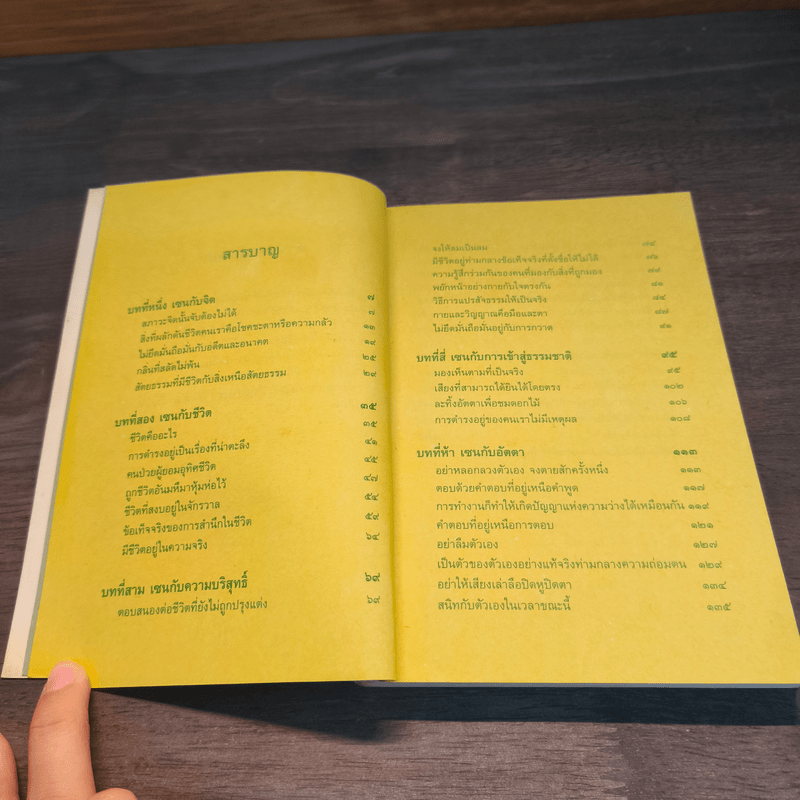 สารบาญ
บทที่หนึ่ง เซนกับจิต ๗
สภาวะจิตนั้นจับต้องไม่ได้ ๗
สิ่งที่ผลักดันชีวิตคนเราคือโชคชะตาหรือความกลัว ๑๓
ไม่ยึดมั่นถือมั่นกับอดีตและอนาคต ๑๙
กลิ่นที่สลัดไม่พ้น ๒๕
สัตยธรรมที่มีชีวิตกับสิ่งเหนือสัตยธรรม ๒๙
บทที่สอง เซนกับชีวิต ๓๕
ชีวิตคืออะไร ๓๕
การดำรงอยู่เป็นเรื่องที่น่าตะลึง ๔๑
คนป่วยผู้ยอมอุทิศชีวิต ๔๕
ถูกชีวิตอันมหึมาหุ้มห่อไว้ ๔๗
ชีวิตที่สงบอยู่ในจักรวาล ๕๔
ข้อเท็จจริงของการสำนึกในชีวิต ๕๙
มีชีวิตอยู่ในความจริง ๖๔
บทที่สาม เซนกับความบริสุทธิ์ ๖๙
ตอบสนองต่อชีวิตที่ยังไม่ถูกปรุงแต่ง ๖๙
จงให้ลมเป็นลม ๗๔
มีชีวิตอยู่ท่ามกลางข้อเท็จจริงที่ตั้งชื่อให้ไม่ได้ ๗๖
ความรู้สึกร่วมกันของคนที่มองกับสิ่งที่ถูกมอง ๗๙
พยักหน้าอย่างกายกับใจตรงกัน ๘๑
วิธีการแปรสัจธรรมให้เป็นจริง ๘๔
กายและวิญญาณคือมือและตา ๘๗
ไม่ยึดมั่นถือมั่นอยู่กับการกวาด
บทที่สี่ เซนกับการเข้าสู่ธรรมชาติ ๙๕
มองเห็นตามที่เป็นจริง ๙๕
เสียงที่สามารถได้ยินได้โดยตรง ๑๐๒
ละทิ้งอัตตาเพื่อชมดอกไม้ ๑๐๖
การดำรงอยู่ของคนเราไม่มีเหตุผล ๑๐๘
บทที่ห้า เซนกับอัตตา ๑๑๓
อย่าหลอกลวงตัวเอง จงตายสักครั้งหนึ่ง ๑๑๓
ตอบด้วยคำตอบที่อยู่เหนือคำพูด ๑๑๗
การทำงานก็ทำให้เกิดปัญญาแห่งความว่างได้เหมือนกัน ๑๑๙
คำตอบที่อยู่เหนือการตอบ ๑๒๑
อย่าลืมตัวเอง ๑๒๗
เป็นตัวของตัวเองอย่างแท้จริงท่ามกลางความถ่อมตน ๑๒๙
อย่าให้เสียงเล่าลือปิดหูปิดตา ๑๓๔
สนิทกับตัวเองในเวลาขณะนี้ ๑๓๕